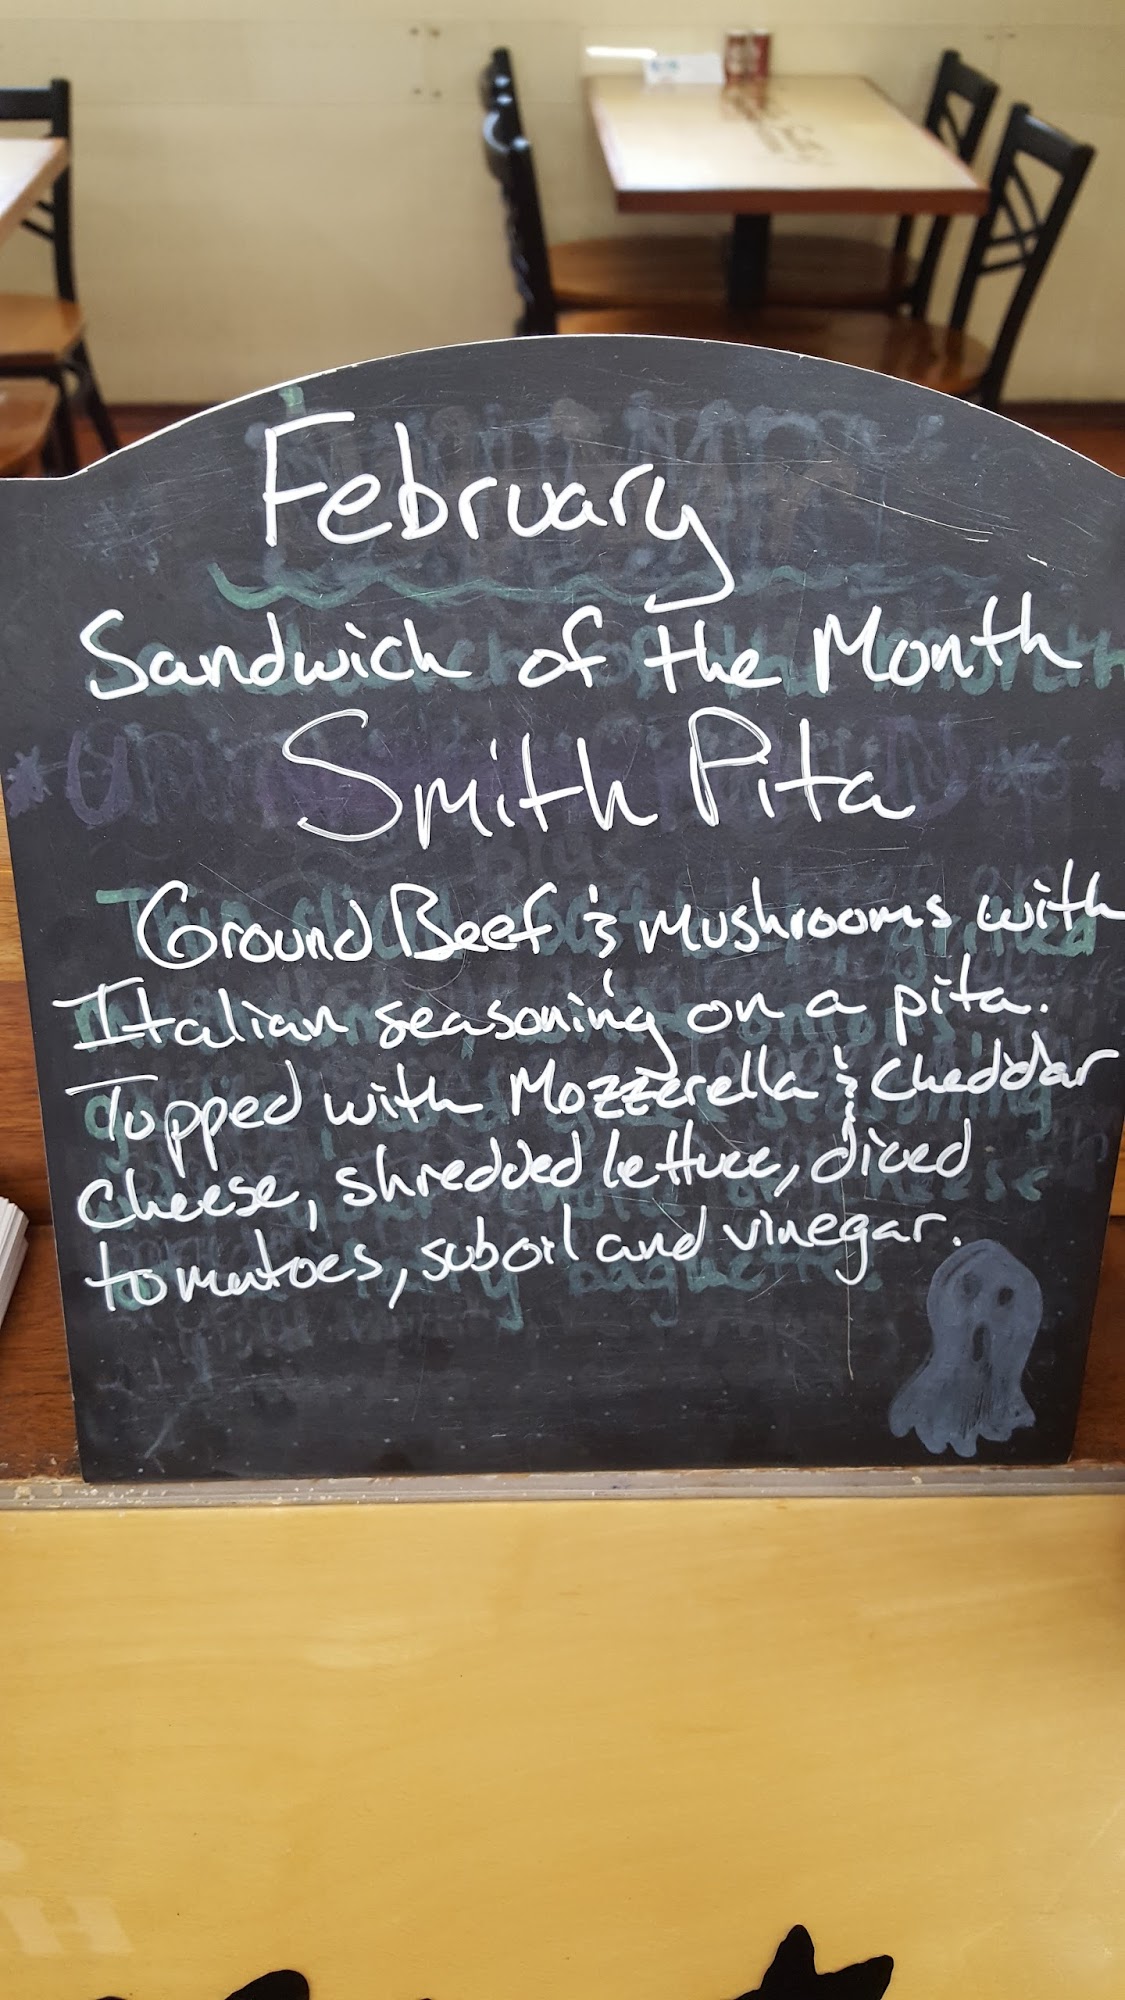 February
Sandwich of the Month
Smith Pita
Ground Beef & Mushrooms with
Italian seasoning on a pita.
Topped with Mozzerella & Cheddar
Cheese, shredded lettuce, diced
tomatoes, sub oil and vinegar.